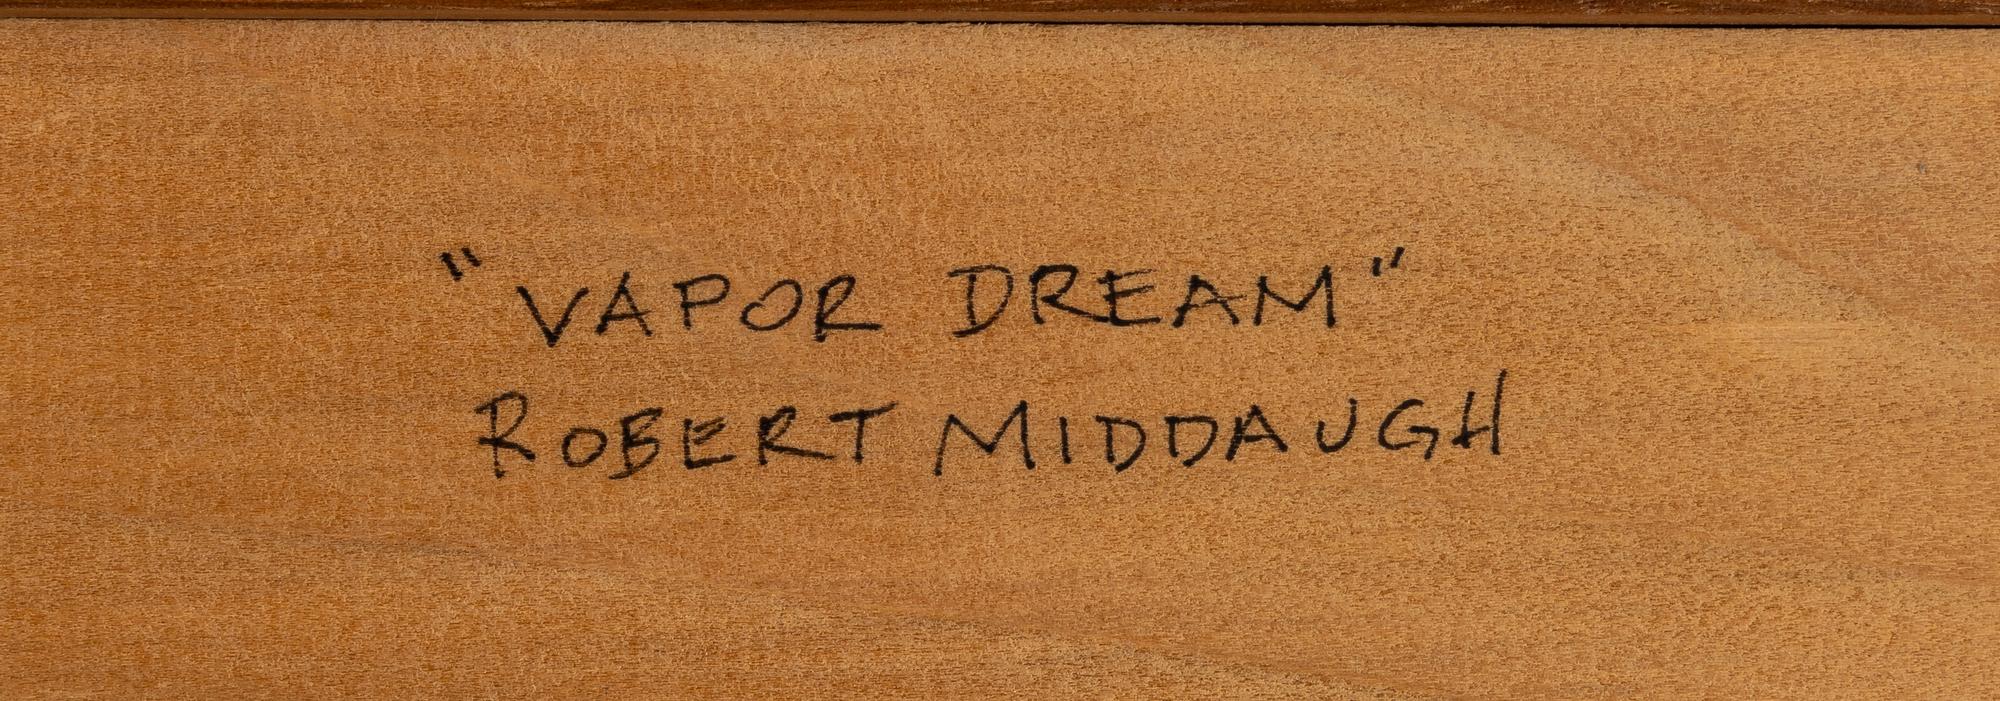 "VAPOR DREAM"
ROBERT MIDDAUGH